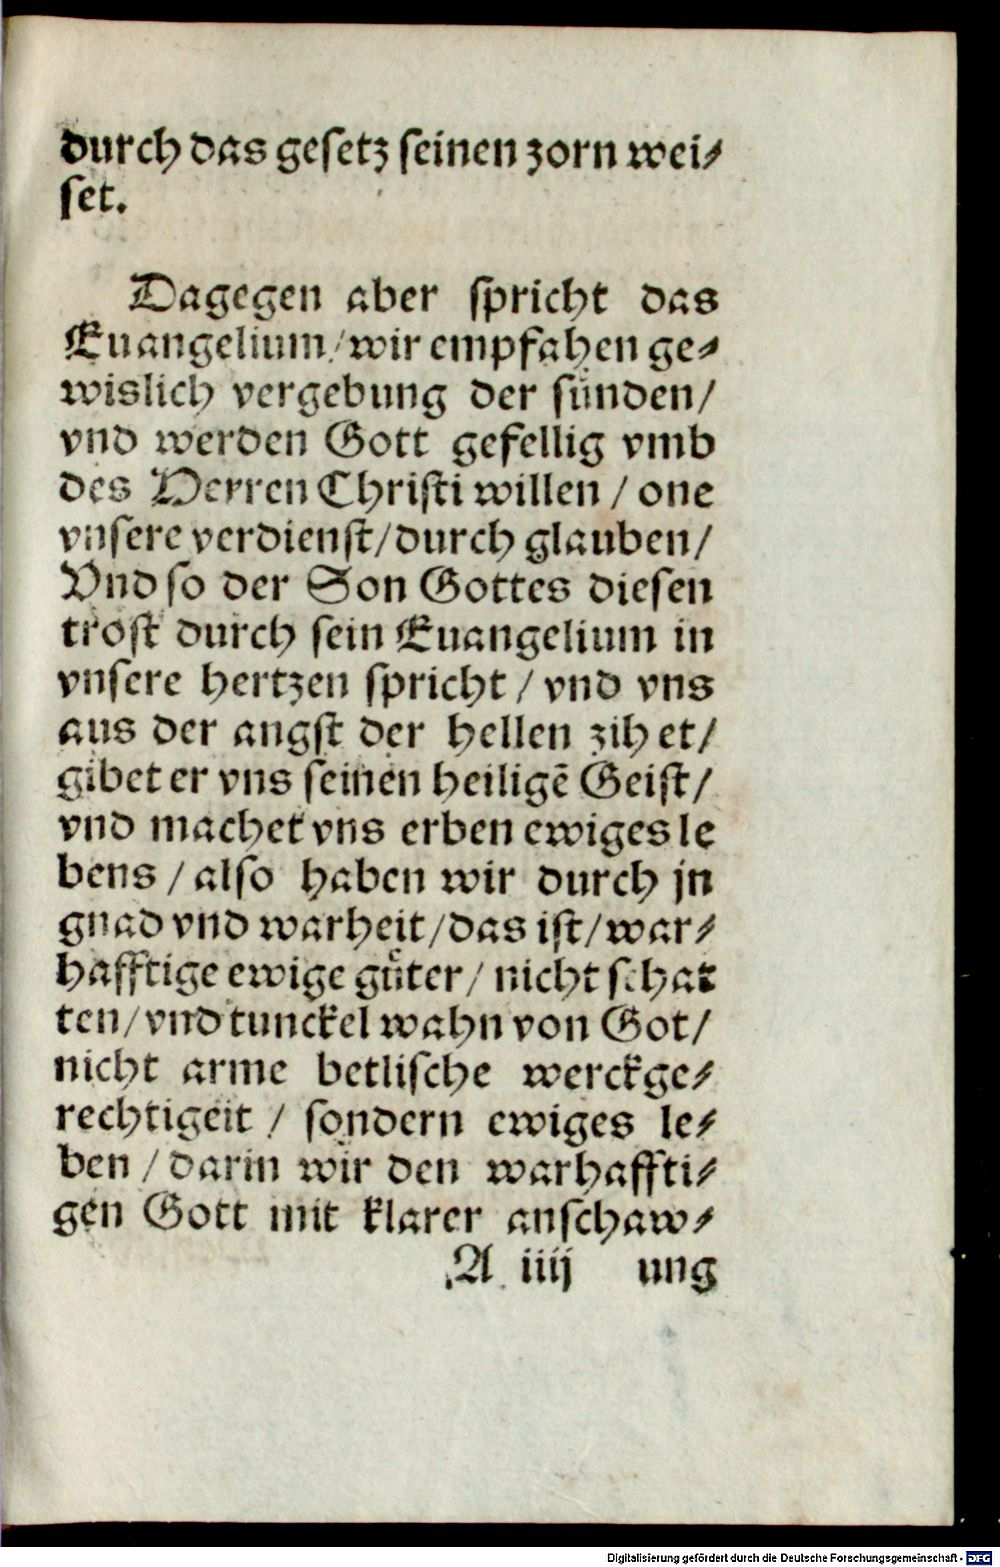 durch das gesetz seinen zorn wei⸗
set.
Dagegen aber spricht das
Euangelium/wir empfahen ge⸗
wislich vergebung der sünden/
vnd werden Gott gefellig vmb
des Herren Christi willen / one
vnsere verdienst/durch glauben/
Vnd so der Son Gottes diesen
trost durch sein Euangelium in
vnsere hertzen spricht / vnd vns
aus der angst der hellen zihet/
gibet er vns seinen heiligē Geist/
vnd machet vns erben ewiges le
bens / also haben wir durch jn
gnad vnd warheit/das ist/war⸗
hafftige ewige güter/ nicht schat
ten/vnd tunckel wahn von Got/
nicht arme betlische werckge⸗
rechtigeit / sondern ewiges le⸗
ben / darin wir den warhaffti⸗
gen Gott mit klarer anschaw⸗
A iiij ung
Digitalisierung gefördert durch die Deutsche Forschungsgemeinschaft - DFG